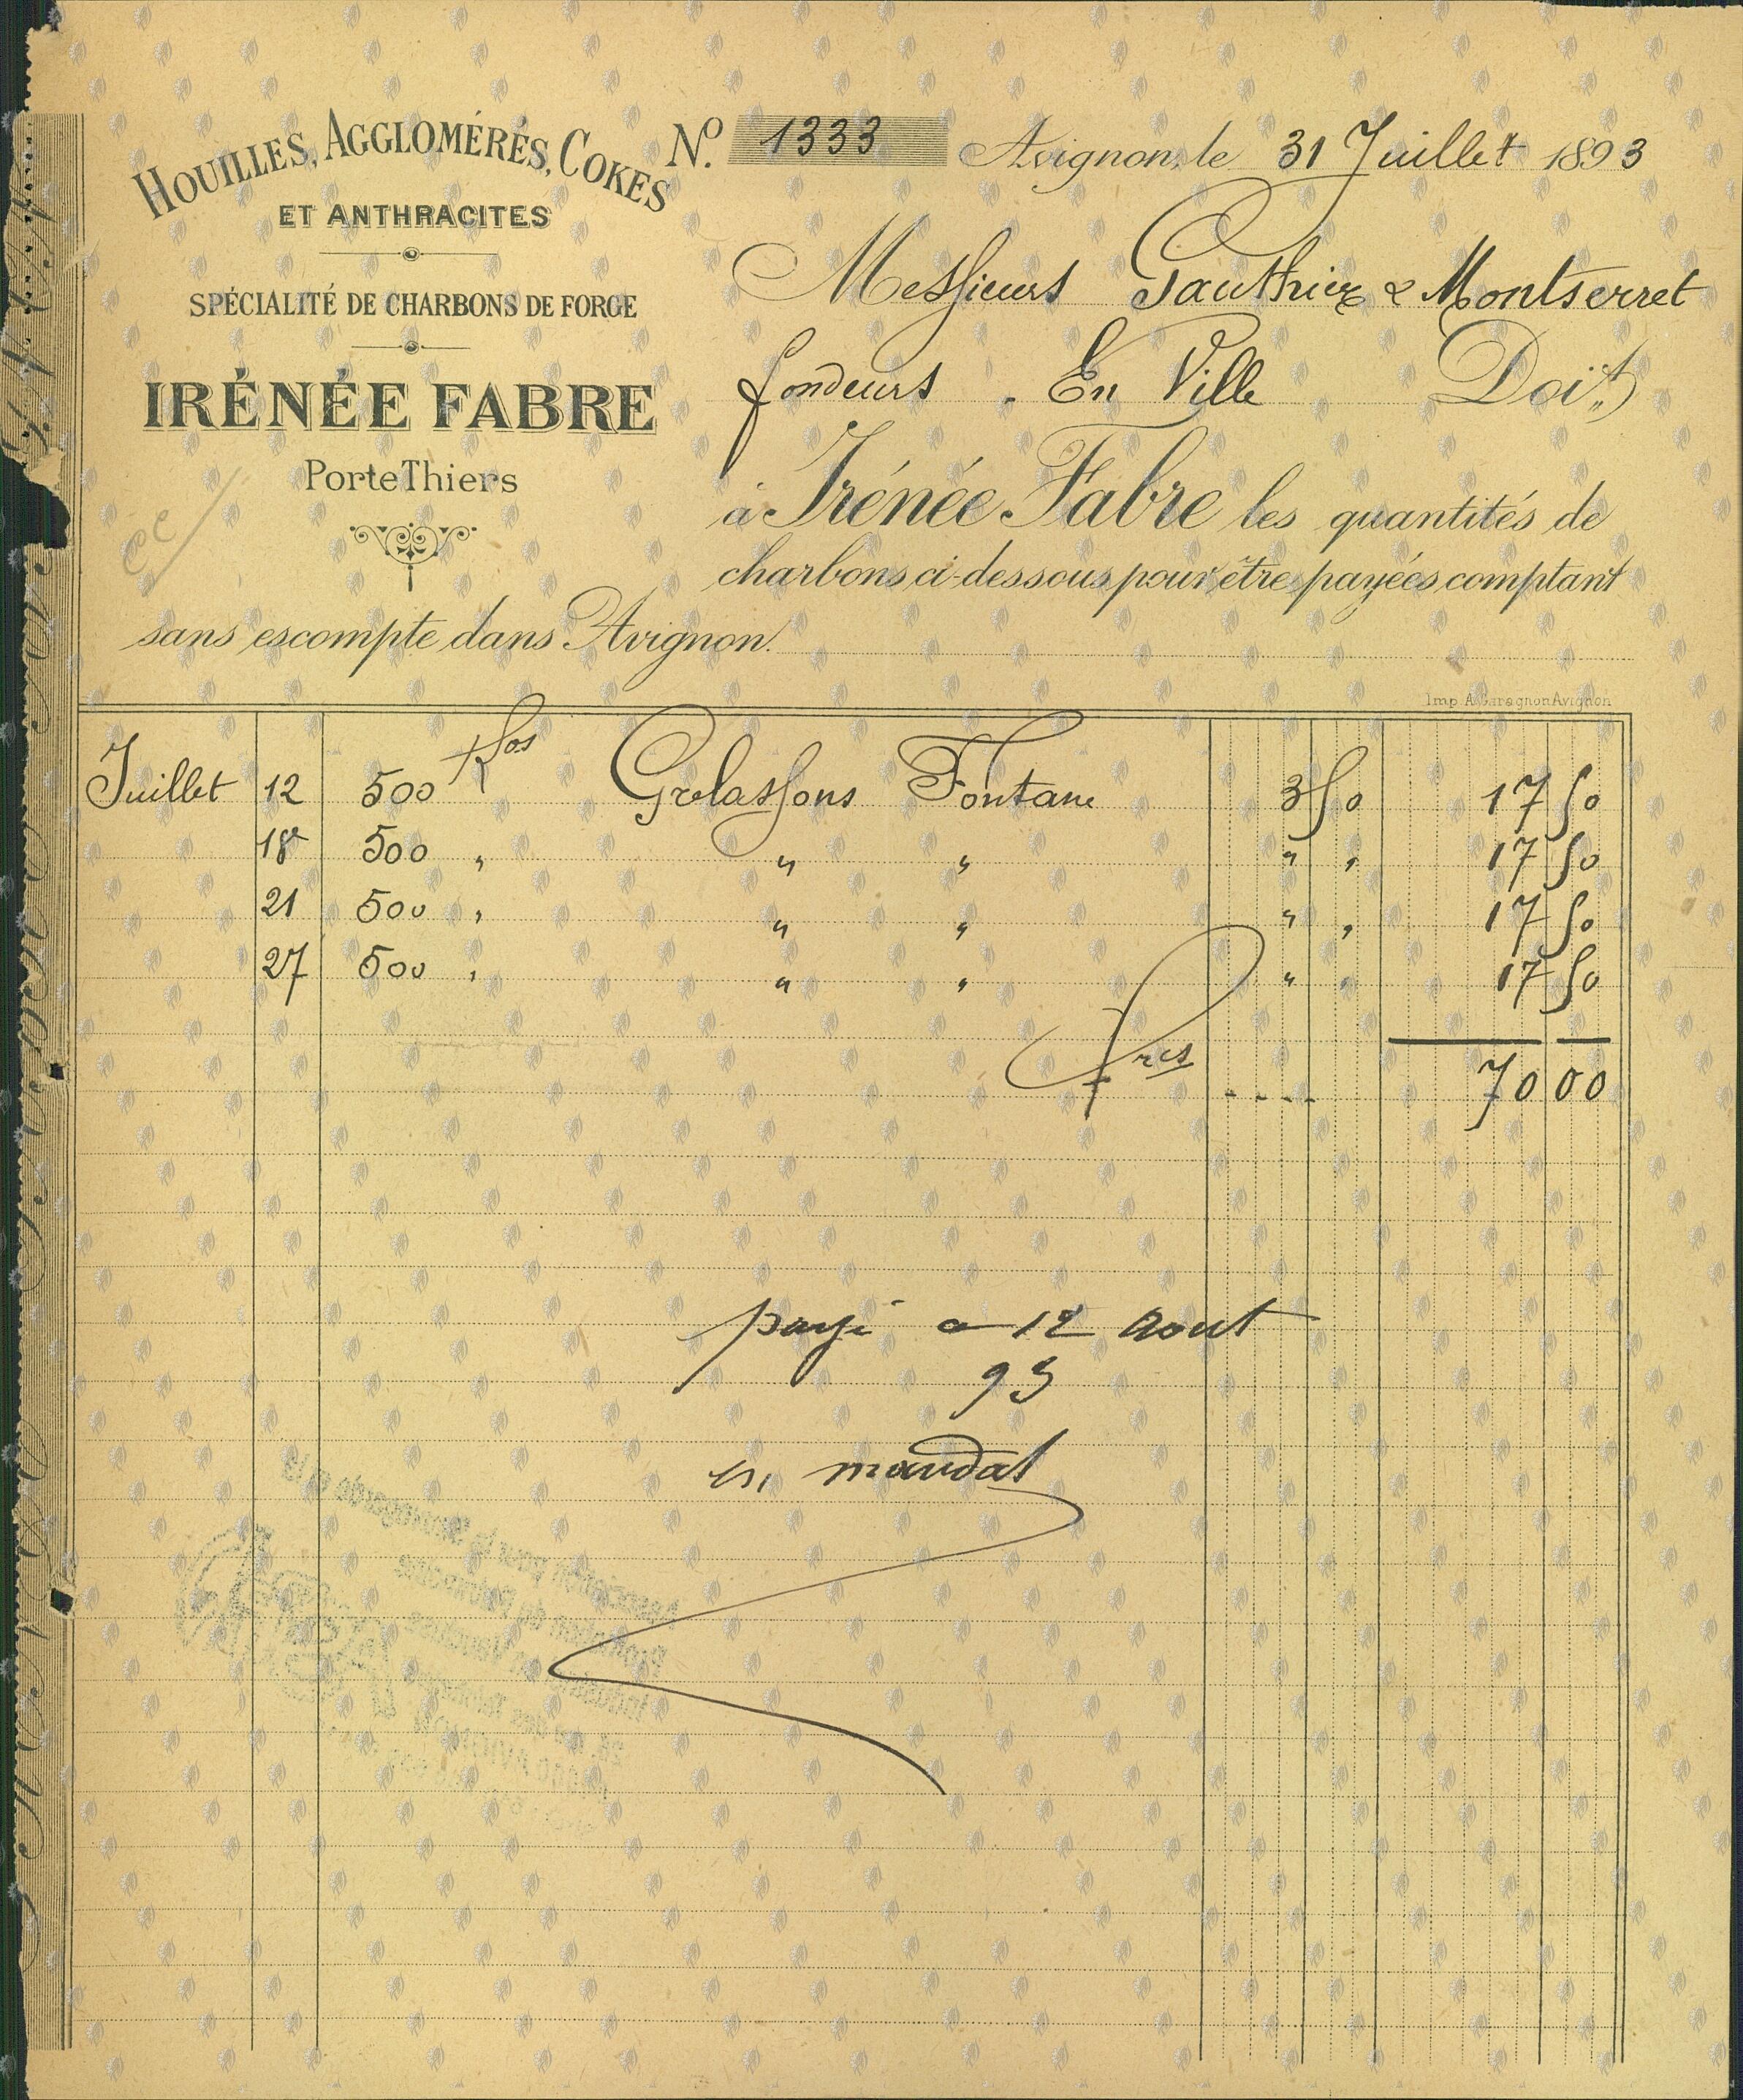 HOUILLES, AGGLOMÉRÉS, COKES
ET ANTHRACITES
SPÉCIALITÉ DE CHARBONS DE FORGE
IRÉNÉE FABRE
Porte Thiers
N° 1333 Avignon, le 31 Juillet 1893
Messieurs Gauthier & Montserret
fondeurs . En Ville Doit
à Irénée Fabre les quantités de
charbons ci-dessous pour être payées comptant
sans escompte dans Avignon.
Imp. A. Garagnon Avignon
Juillet 12 500 Kos Grelassons Fontane 3 50 17 50
18 500 " " " " " 17 50
21 500 " " " " " 17 50
27 500 " " " " " 17 50
frcs .... 70 00
payé a 12 Aout
93
en mandat